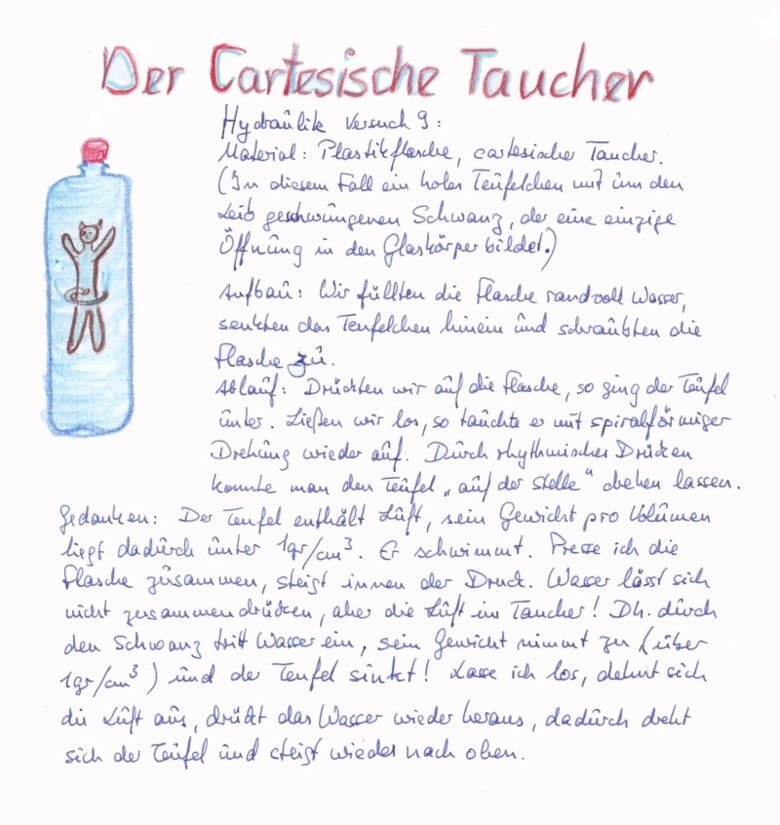 Der Cartesische Taucher
Hydraulik Versuch 9:
Material: Plastikflasche, cartesischer Taucher.
(In diesem Fall ein holes Teufelchen mit um den
Leib geschwungenen Schwanz, der eine einzige
Öffnung in den Glaskörper bildet.)
Aufbau: Wir füllten die Flasche randvoll Wasser,
senkten das Teufelchen hinein und schraubten die
Flasche zu.
Ablauf: Drückten wir auf die Flasche, so ging der Teufel
unter. Ließen wir los, so tauchte er mit spiralförmiger
Drehung wieder auf. Durch rhythmisches Drücken
konnte man den Teufel „auf der Stelle" drehen lassen.
Gedanken: Der Teufel enthält Luft, sein Gewicht pro Volumen
liegt dadurch unter 1gr/cm³. Er schwimmt. Presse ich die
Flasche zusammen, steigt innen der Druck. Wasser lässt sich
nicht zusammendrücken, aber die Luft im Taucher! Dh. durch
den Schwanz tritt Wasser ein, sein Gewicht nimmt zu (über
1gr/cm³) und der Teufel sinkt! Lasse ich los, dehnt sich
die Luft aus, drückt das Wasser wieder heraus, dadurch dreht
sich der Teufel und steigt wieder nach oben.